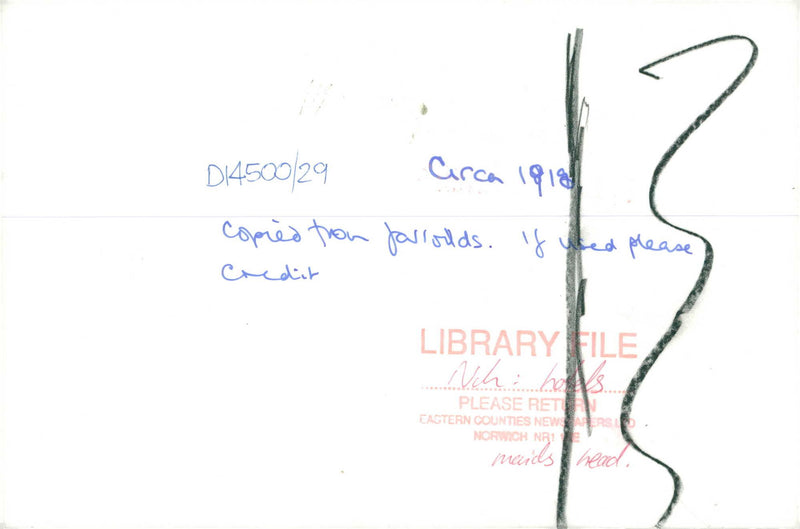 D14500/29
Circa 1918
Copied from Jarrolds. If used please
Credit
LIBRARY FILE
Nch: hotels
PLEASE RETURN
EASTERN COUNTIES NEWSPAPERS LTD.
NORWICH NR1 1RE
maids head.